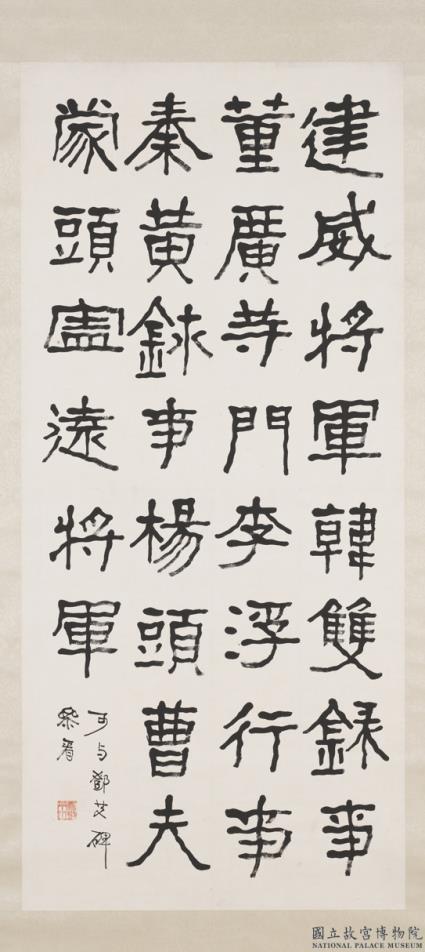 建威將軍韓雙錄事
董廣寺門李浮行事
秦黃錄事楊頭曹夫
蒙頭盧遠將軍
可与鄧艾碑
參看
國立故宮博物院
NATIONAL PALACE MUSEUM